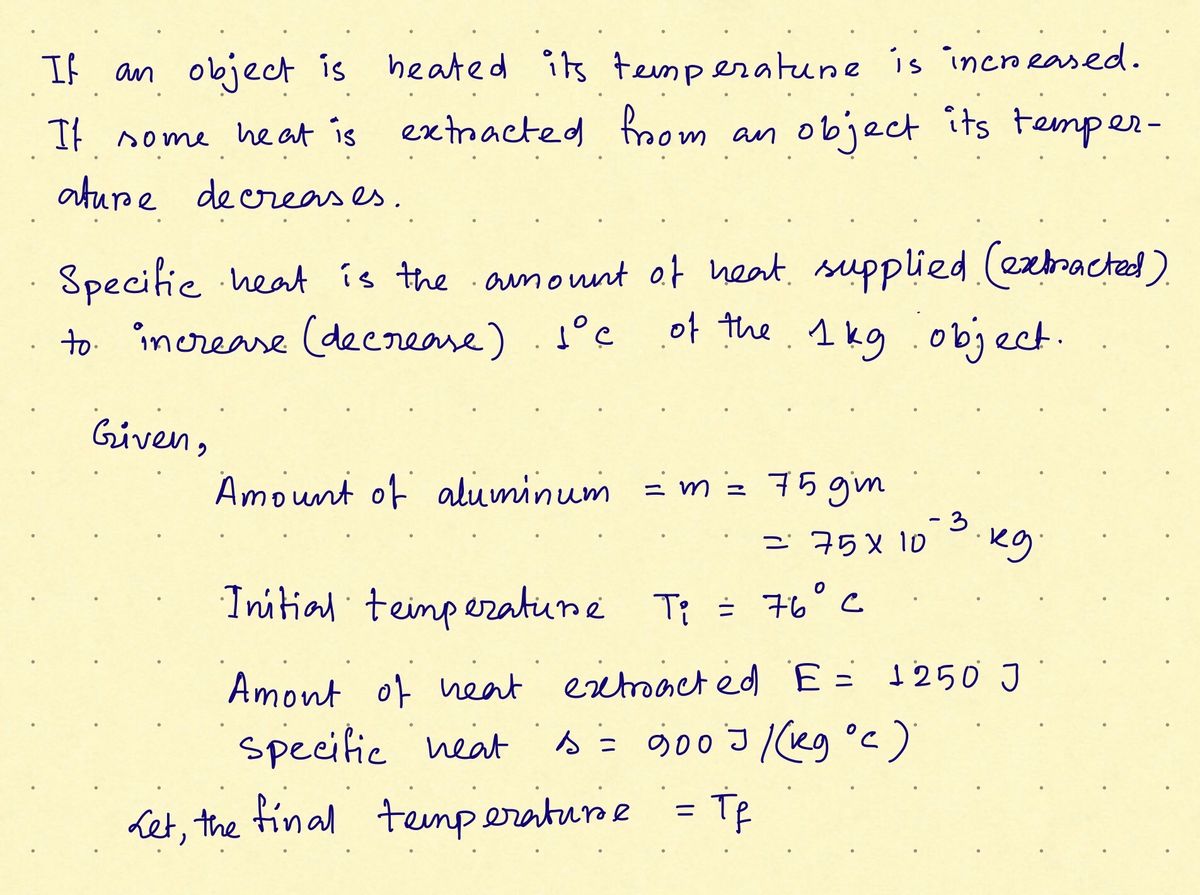 If an object is heated its temperature is increased.
If some heat is extracted from an object its temper-
ature decreases.
Specific heat is the amount of heat supplied (extracted)
to increase (decrease) 1°C of the 1 kg object.
Given,
Amount of aluminum = m = 75 gm
= 75 x 10⁻³ kg
Initial temperature Ti = 76° C
Amont of heat extracted E = 1250 J
specific heat s = 900 J/(kg °C)
Let, the final temperature = Tf